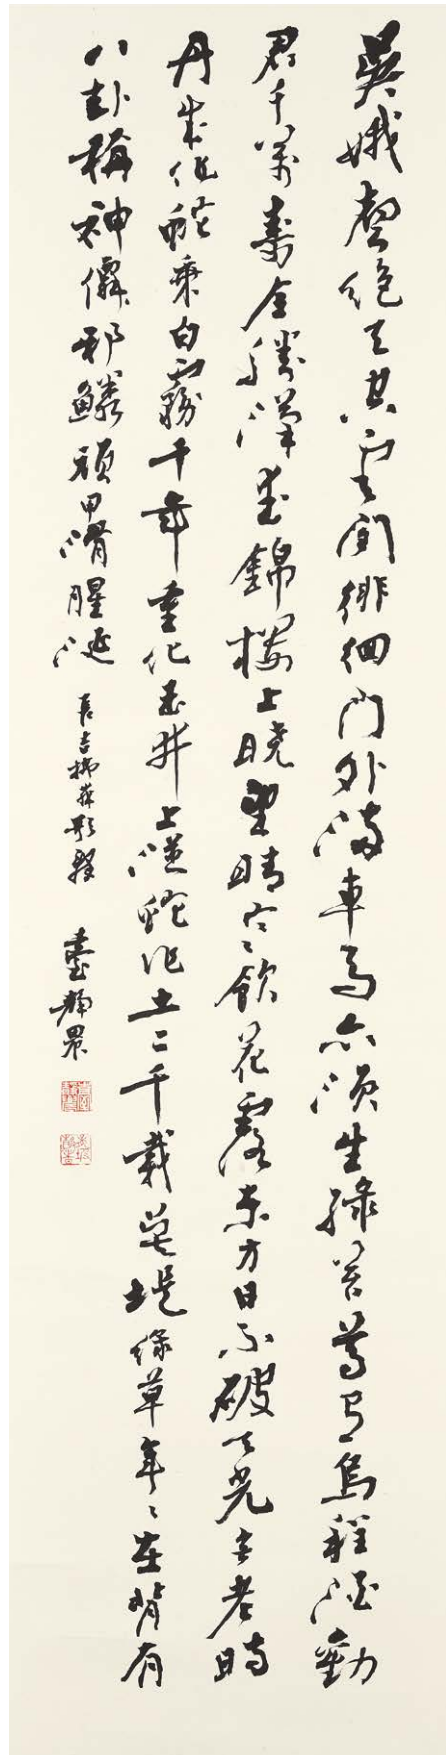 吳娥聲絕天空雲閒徘徊門外滿車馬亦須生綠苔尊有烏程酒勸
君千萬壽全勝漢武錦樓上曉望晴寒飲花露東方日不破天光無老時
丹成作蛇乘白霧千年重化玉井土從蛇作土二千載吳堤綠草年年在背有
八卦稱神僊邪鱗頑甲滑腥涎 長吉拂舞歌辭 臺靜農